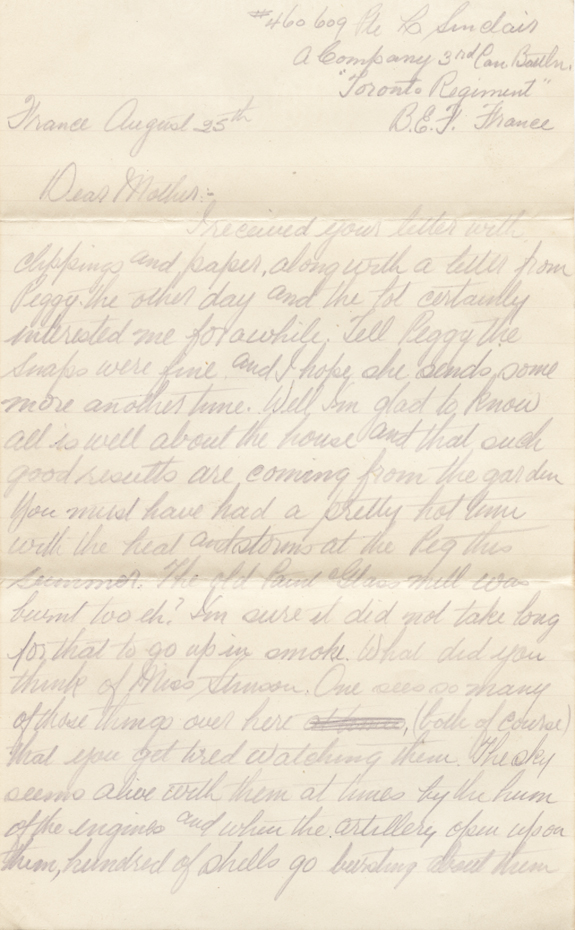 #460609 Pte L Sinclair
A Company 3rd Can Battln.
"Toronto Regiment"
B.E.F. France
France August 25th
Dear Mother:-
I received your letter with
clippings and paper, along with a letter from
Peggy the other day and the lot certainly
interested me for awhile. Tell Peggy the
snaps were fine and I hope she sends some
more another time. Well I'm glad to know
all is well about the house and that such
good results are coming from the garden
You must have had a pretty hot time
with the heat and storms at the Peg this
summer. The old Paint Glass mill was
burnt too eh? I'm sure it did not take long
for that to go up in smoke. What did you
think of Miss Stinson. One sees so many
of those things over here , (both of course)
that you get tired watching them. The sky
seems alive with them at times by the hum
of the engines and when the artillery open upon
them, hundred of shells go bursting about them